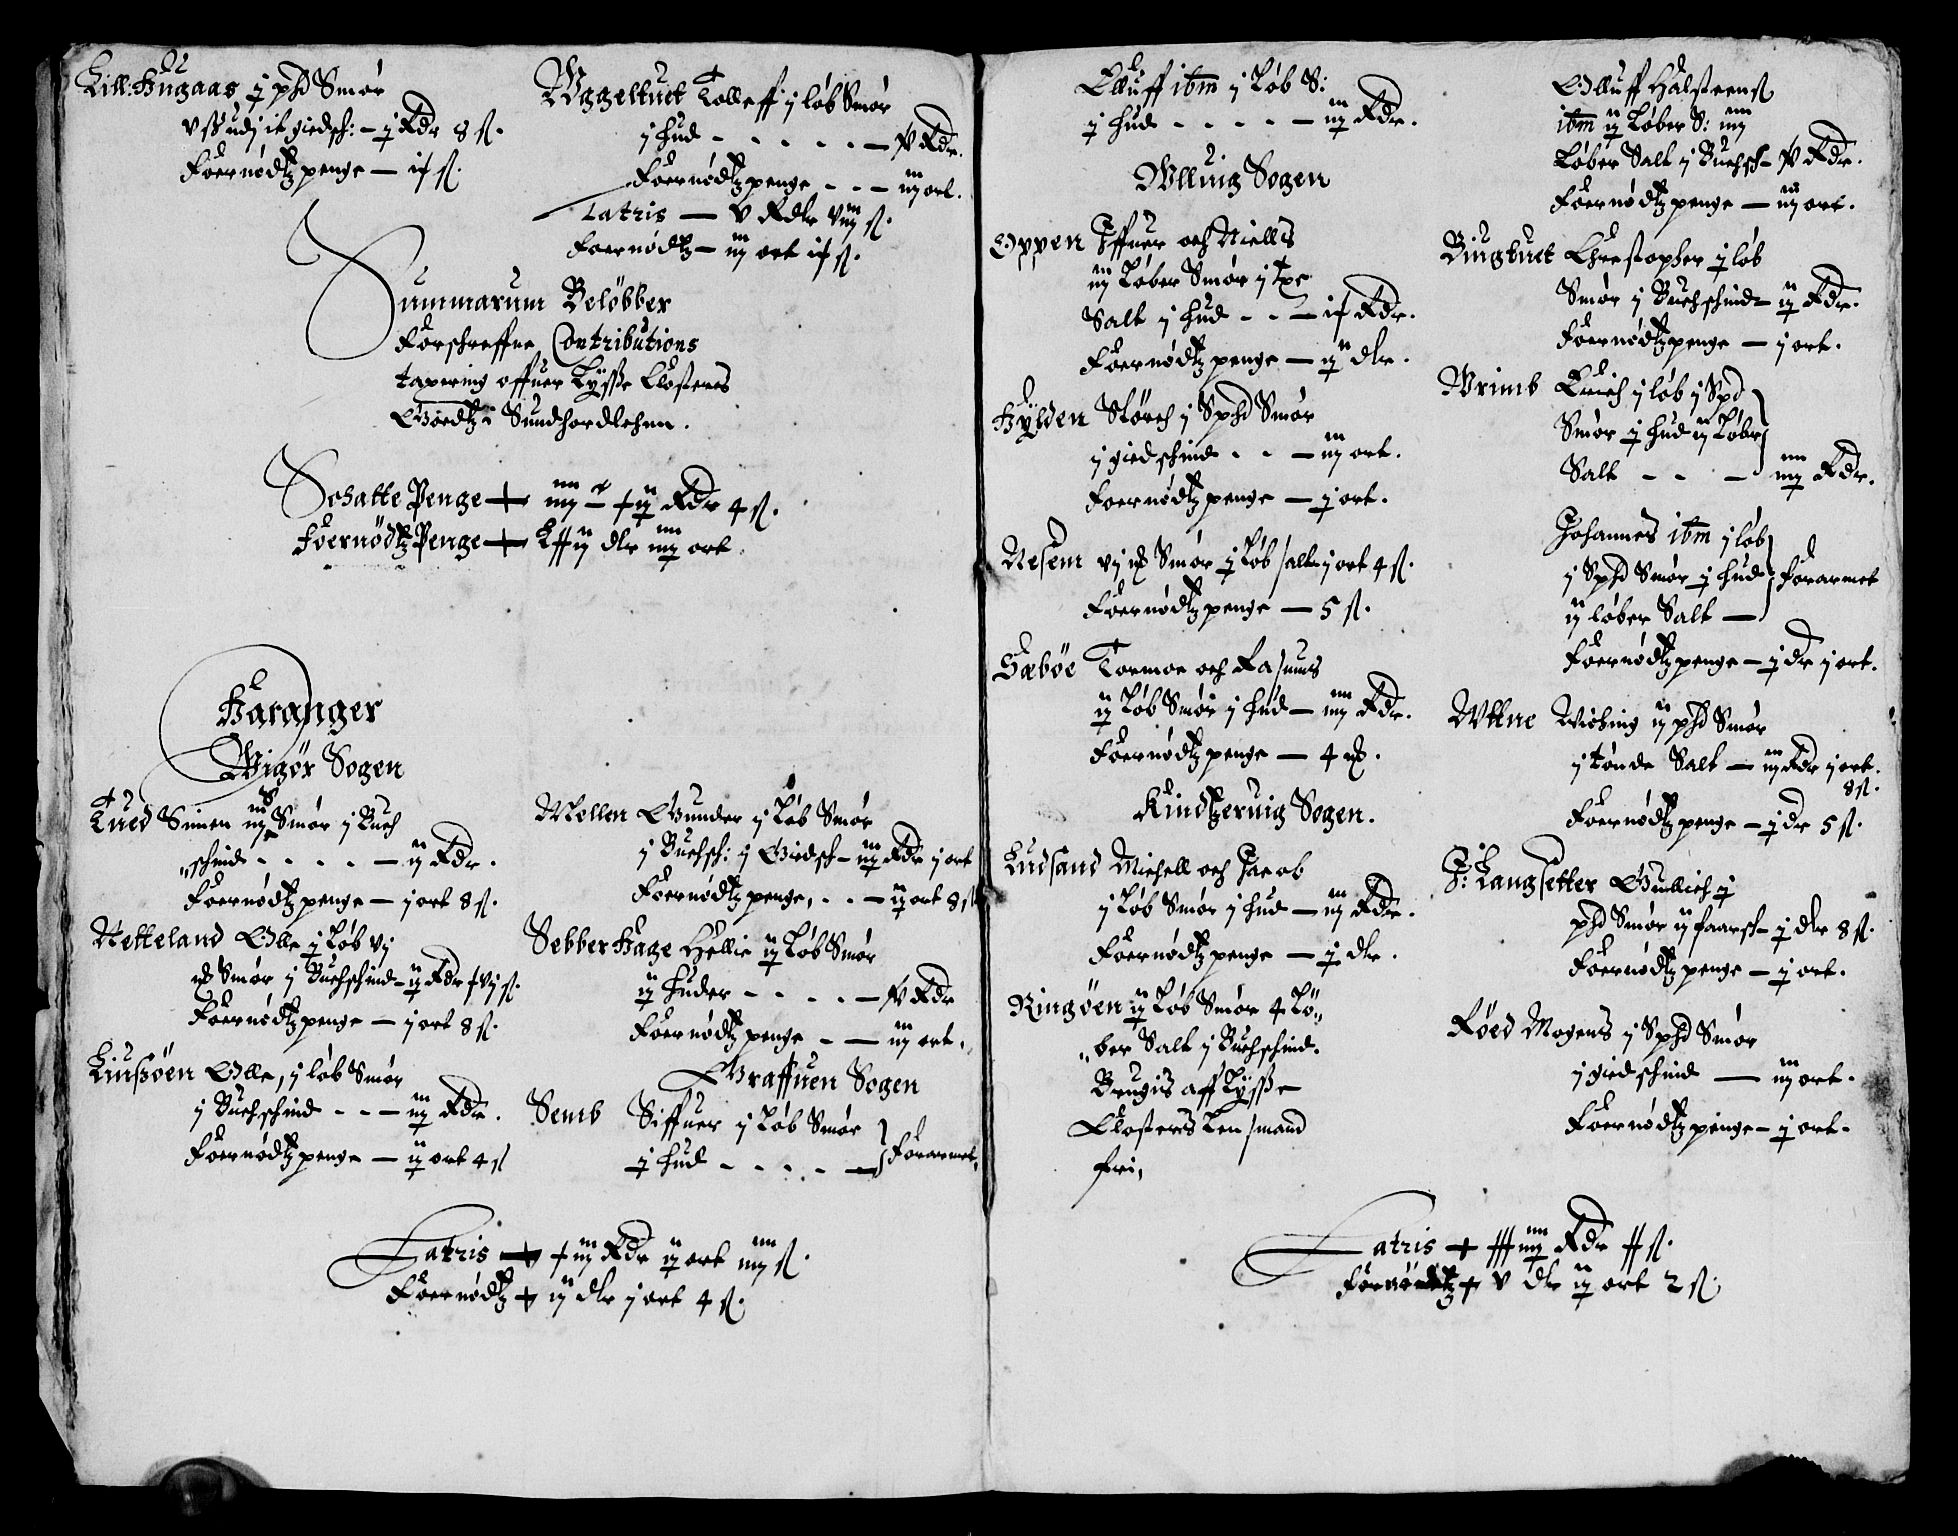 Lill: Hugaas j phd Smør
j Rdr 8 ß.
Foernødtz penge — ß.
Wggeltuet Tolleff j løb Smør
j hud - - - - — Rdr.
Foernødtz penge - - — iij ort.
Latris — v Rdlr viij ß.
Foernødtz — iij ort ß.
Summarum Beløbber
Forschreffne Contributions
taxering offuer Lysse Closters
Goedtz i Sundhordlehnn.
Schatte Penge Rdr 4 ß.
Foernødtz Penge dlr iiij ort
Haranger
Wigør Sogen
Lued Simen Smør j Buch
schind - - - - — ij Rdr.
Foernødtz penge — j ort 8 ß.
Netteland Olle j Løb vj
Smør j Buchschind — ij Rdr ß.
Foernødtz penge — j ort 8 ß.
Liusøen Olle, j løb Smør
j Buchschind - - — iij Rdr.
Foernødtz penge — ij ort 4 ß
Mollen Gunder j Løb Smør
j Buchsch: j Giedsch — iij Rdr j ort
Foernødtz penge, - - — ij ort 8 ß
Sebber Hage Hellie ij Løb Smør
ij Huder - - - - — Rdr
Foernødtz penge - — iij ort.
Graffuen Sogen
Semb Siffuer j Løb Smør
j hud - - - - — Forarmet.
Latris iij Rdr ij ort iiij ß.
Foernødtz ij dlr j ort 4 ß.
Elluff itm j Løb S:
j hud - - - - — iij Rdr.
Wlluig Sogen
Oppen Iffuer och Niells
iij Løber Smør j
Salt j hud - - — Rdr.
Foernødtz penge — ij dlr.
Hylden Størch j Sphd Smør
j giedschind - - — iij ort.
Foernødtz penge — j ort.
Nesem vj Smør j Løb salt j ort 4 ß.
Foernødtz penge — 5 ß.
Sæbøe Tormoe och Rasmus
ij Løb Smør j hud — iiij Rdr.
Foernødtz penge — 4
Kindtzeruig Sogen.
Ludsand Michell och Jacob
j Løb Smør j hud — iij Rdr.
Foernødtz penge — j dlr.
Ringøen ij Løb Smør 4 Lø
ber Salt j Buchschind.
Brugis aff Lysse
Closters Lensmand
fri,
Olluff Halsteenß
itm ij Løber S: iiij
Løber Salt j Buchsch — Rdr.
Foernødtz penge — iij ort.
Bingtuet Chrestopher j løb
Smør j Buchschind — ij Rdr.
Foernødtz penge — j ort.
Wrimb Erich j løb j Spd
Smør j hud ij Løbr
Salt - - — iiij Rdr.
Johannes itm j løb
j Sphd Smør j hud Forarmet
ij løber Salt —
Foernødtz penge — j dr j ort.
Wttne Wiching ij phd Smør
j tønde Salt — iij Rdr j ort.
8 ß.
Foernødtz penge — j dr 5 ß.
J: Langsetter Gullich j
phd Smør ij faarsch — j dlr 8 ß.
Foernødtz penge — j ort.
Røed Mogens j Sphd Smør
j giedschind — iij ort.
Foernødtz penge — j ort.
Latris Rdr ß.
Foernødtz v dlr ij ort 2 ß,